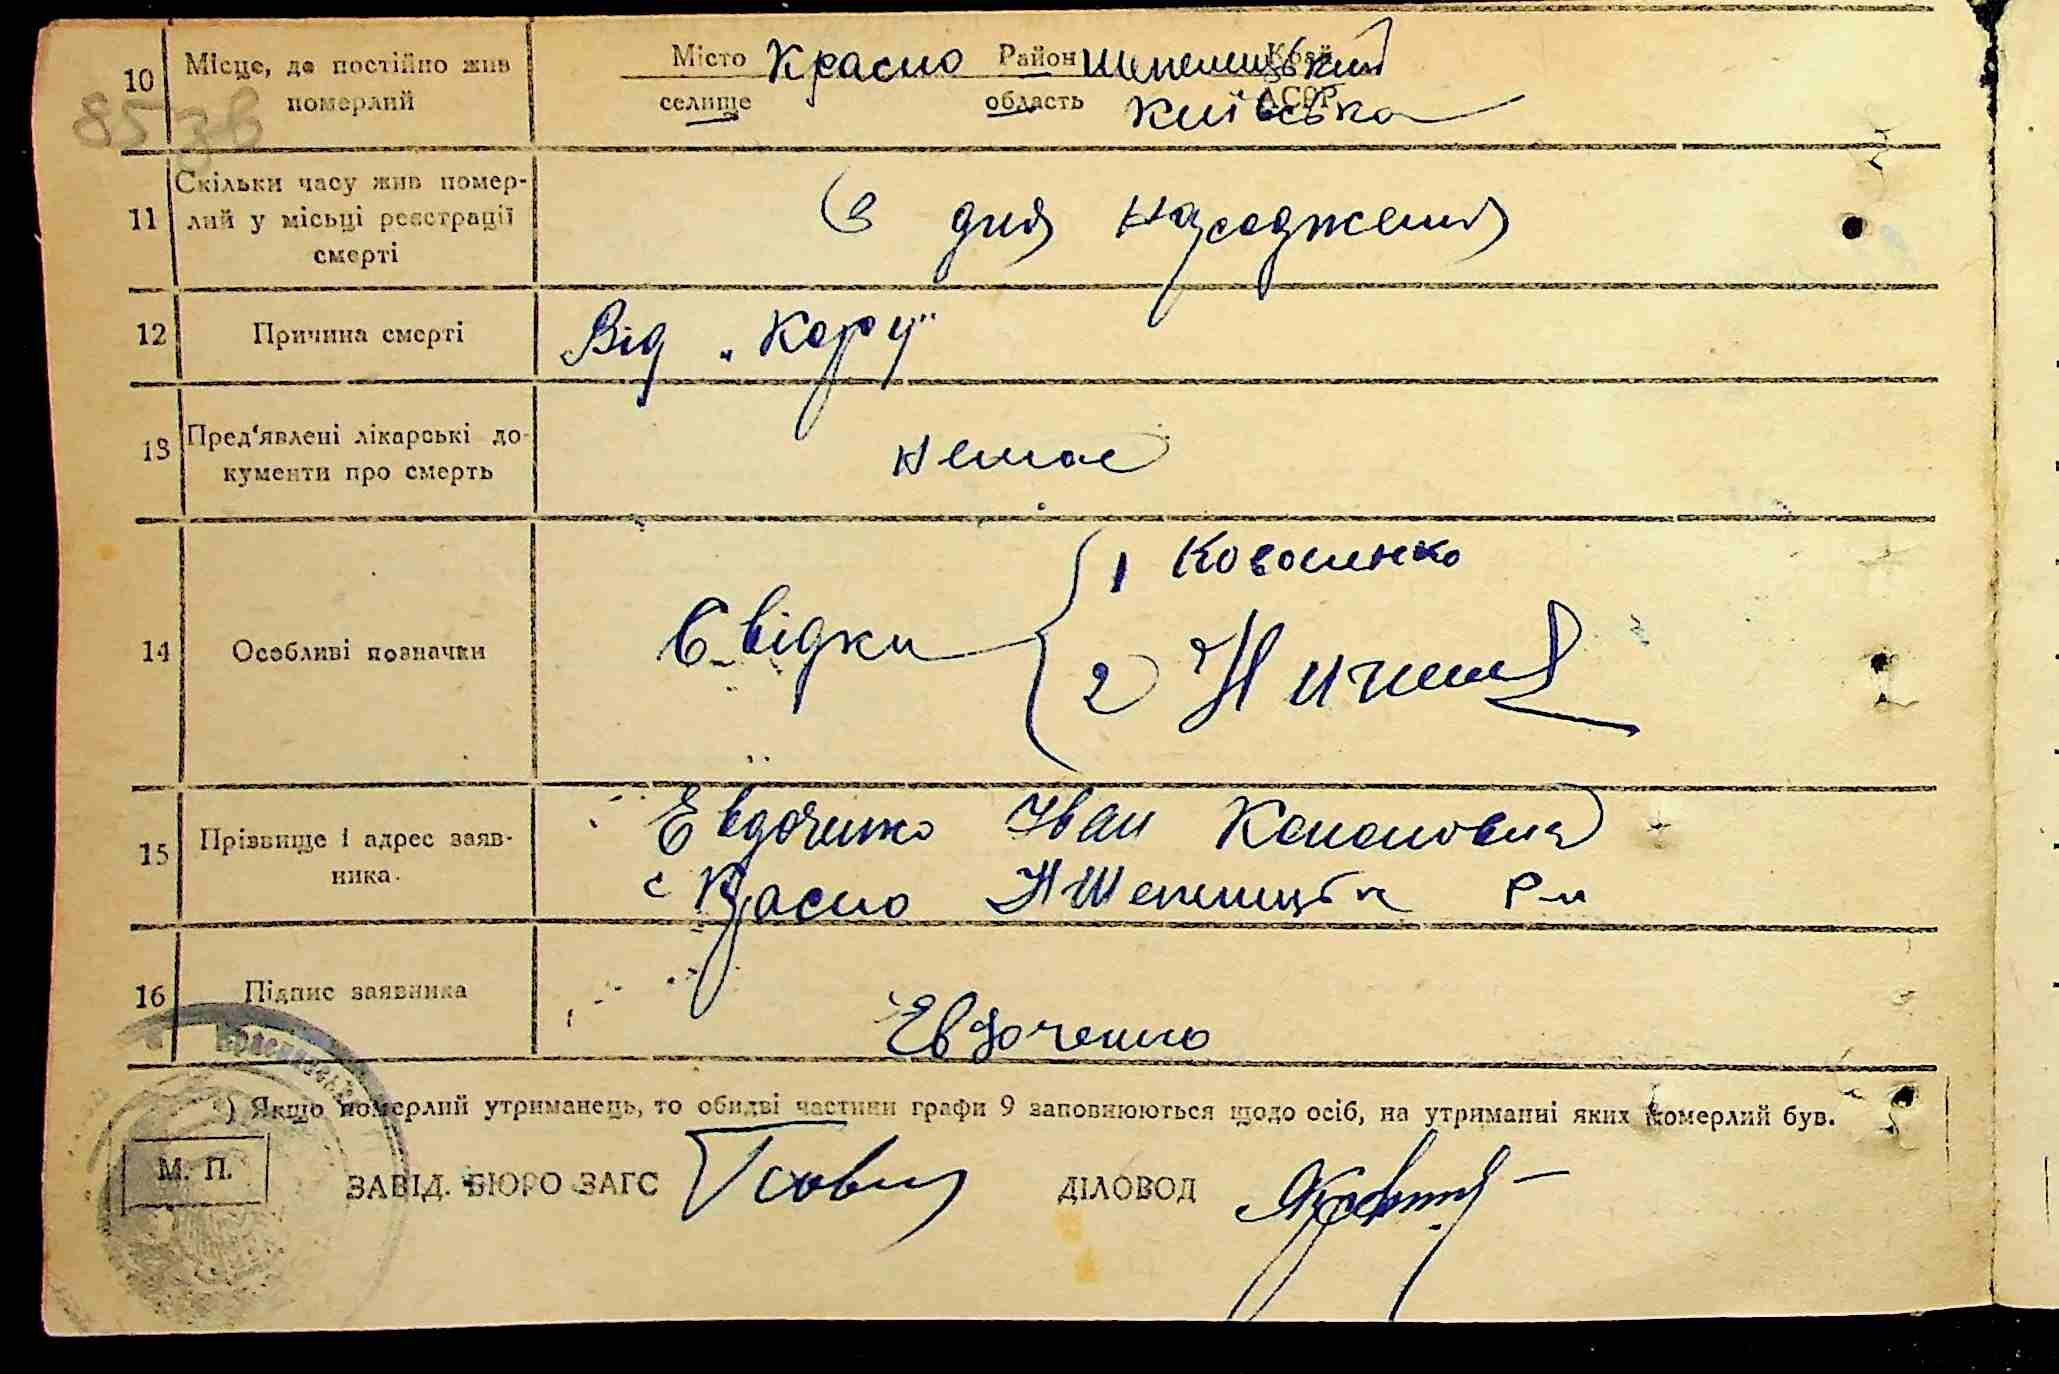 10 Місце, де постійно жив померлий
Місто Красно Район Шепелицький Край
селище область Київська АСРР
85 зв
11 Скільки часу жив помер-
лий у місьці реєстрації
смерті
З дня народження
12 Причина смерті Від „Кору"
13 Пред'явлені лікарські до-
кументи про смерть
немає
14 Особливі позначки Свідки 1
2
15 Прізвище і адрес заяв-
ника.
Евдоченко Іван Кононович
с Красно НШепелицьк Р-н
16 Підпис заявника
Евдоченко
Красн
*) Якщо померлий утриманець, то обидві частини графи 9 заповнюються щодо осіб, на утриманні яких померлий був.
М. П. ЗАВІД. БЮРО ЗАГС ДІЛОВОД